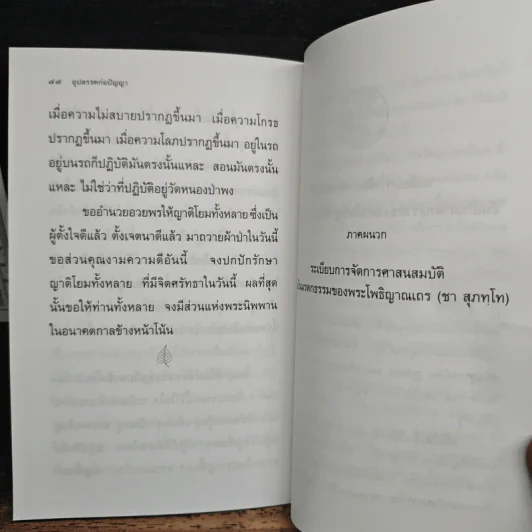 ๘๗ อุปสรรคก่อปัญญา
เมื่อความไม่สบายปรากฏขึ้นมา เมื่อความโกรธ
ปรากฏขึ้นมา เมื่อความโลภปรากฏขึ้นมา อยู่ในรถ
อยู่บนรถก็ปฏิบัติมันตรงนั้นแหละ สอนมันตรงนั้น
แหละ ไม่ใช่ว่าที่ปฏิบัติอยู่วัดหนองป่าพง
ขออำนวยอวยพรให้ญาติโยมทั้งหลาย ซึ่งเป็น
ผู้ตั้งใจดีแล้ว ตั้งเจตนาดีแล้ว มาถวายผ้าป่าในวันนี้
ขอส่วนคุณงามความดีอันนี้ จงปกปักรักษา
ญาติโยมทั้งหลาย ที่มีจิตศรัทธาในวันนี้ ผลที่สุด
นั้นขอให้ท่านทั้งหลาย จงมีส่วนแห่งพระนิพพาน
ในอนาคตกาลข้างหน้าโน้น
ภาคผนวก
ระเบียบการจัดการศาสนสมบัติ
มรดกธรรมของพระโพธิญาณเถร (ชา สุภทฺโท)